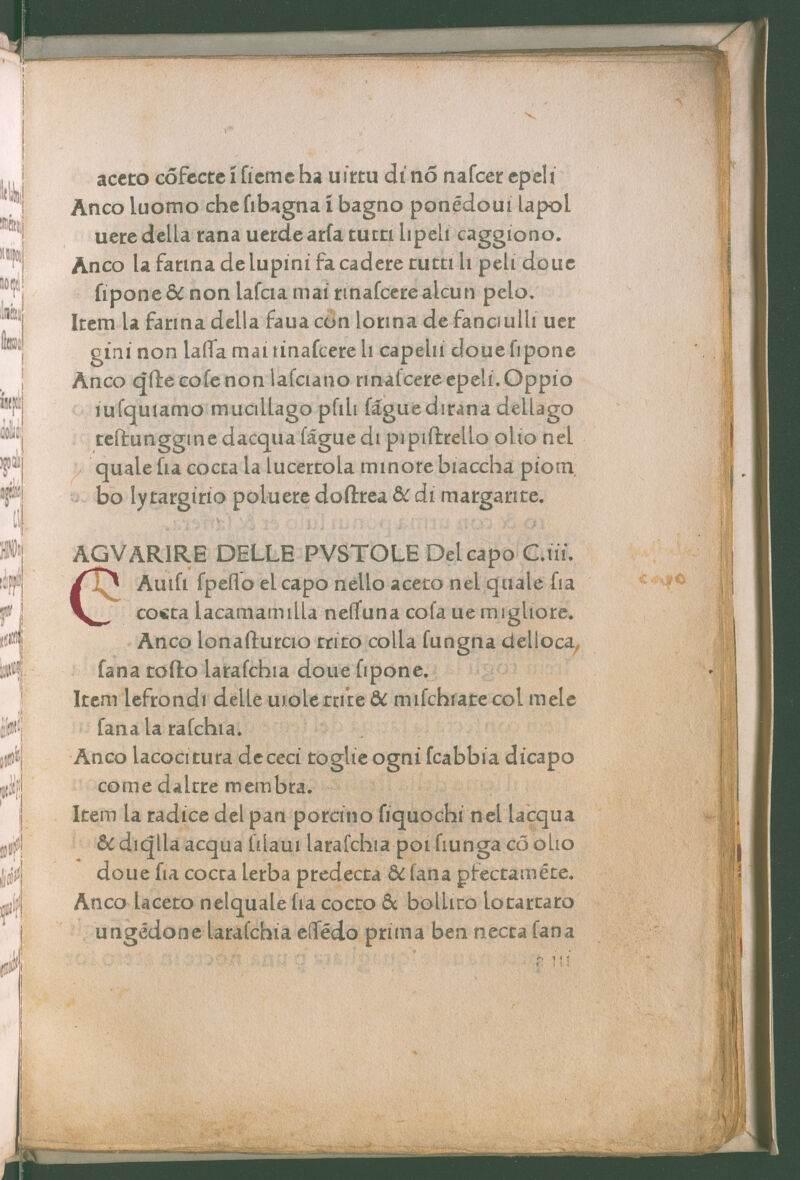 aceto cõfecte ĩ ſieme ha uirtu di nõ naſcer epeli
Anco luomo che ſibagna ĩ bagno ponẽdoui lapol
uere della rana uerde arſa tutti lipeli caggiono.
Anco la farina de lupini fa cadere tutti li peli doue
ſipone & non laſcia mai rinaſcere alcun pelo.
Item la farina della faua con lorina de fanciulli uer
gini non laſſa mai rinaſcere li capelii doue ſipone
Anco q̃ſte coſe non laſciano rinaſcere epeli. Oppio
iuſquiamo mucillago pſili ſãgue dirana dellago
teſtunggine dacqua ſãgue di pipiſtrello olio nel
quale ſia cocta la lucertola minore biaccha piom
bo lytargirio poluere doſtrea & di margarite.
AGVARIRE DELLE PVSTOLE Del capo C.iii.
capo
C Auiſi ſpeſſo el capo nello aceto nel quale ſia
cocta lacamamilla neſſuna coſa ue migliore.
Anco lonaſturcio trito colla ſungna delloca,
ſana toſto laraſchia doue ſipone.
Item lefrondi delle uiole trite & miſchiate col mele
ſana la raſchia.
Anco lacocitura de ceci toglie ogni ſcabbia dicapo
come daltre membra.
Item la radice del pan porcino ſiquochi nel lacqua
& diq̃lla acqua ſilaui laraſchia poi ſiunga cõ olio
doue ſia cocta lerba predecta & ſana ꝑfectamẽte.
Anco laceto nelquale ſia cocto & bollito lotartaro
ungẽdone laraſchia eſſẽdo prima ben necta ſana
iii